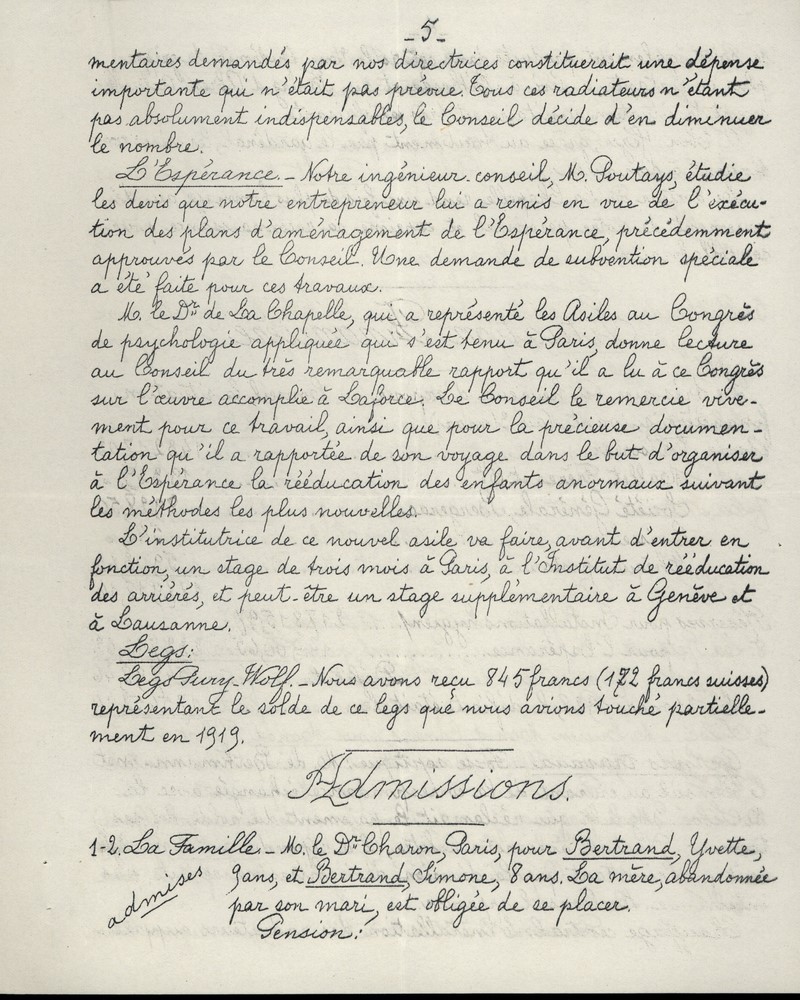 - 5 -
mentaires demandés par nos directrices constituerait une dépense
importante qui n'était pas prévue. Tous ces radiateurs n'étant
pas absolument indispensables, le Conseil décide d'en diminuer
le nombre.
L'Espérance. - Notre ingénieur-conseil, M. Poutays, étudie
les devis que notre entrepreneur lui a remis en vue de l'exécu-
tion des plans d'aménagement de l'Espérance, précédemment
approuvés par le Conseil. Une demande de subvention spéciale
a été faite pour ces travaux.
M. le Dr de La Chapelle, qui a représenté les Asiles au Congrès
de psychologie appliquée qui s'est tenu à Paris, donne lecture
au Conseil du très remarquable rapport qu'il a lu à ce Congrès
sur l'œuvre accomplie à Laforce. Le Conseil le remercie vive-
ment pour ce travail, ainsi que pour la précieuse documen-
tation qu'il a rapportée de son voyage dans le but d'organiser
à l'Espérance la rééducation des enfants anormaux suivant
les méthodes les plus nouvelles.
L'institutrice de ce nouvel asile va faire, avant d'entrer en
fonction, un stage de trois mois à Paris, à l'Institut de rééducation
des arriérés, et peut-être un stage supplémentaire à Genève et
à Lausanne.
Legs:
Legs Jury-Wolf. - Nous avons reçu 845 francs (172 francs suisses)
représentant le solde de ce legs que nous avions touché partielle-
ment en 1919.
Admissions.
1-2. La Famille - M. le Dr Charon, Paris, pour Bertrand, Yvette,
9 ans, et Bertrand, Simone, 8 ans. La mère, abandonnée
admises
par son mari, est obligée de se placer.
Pension: